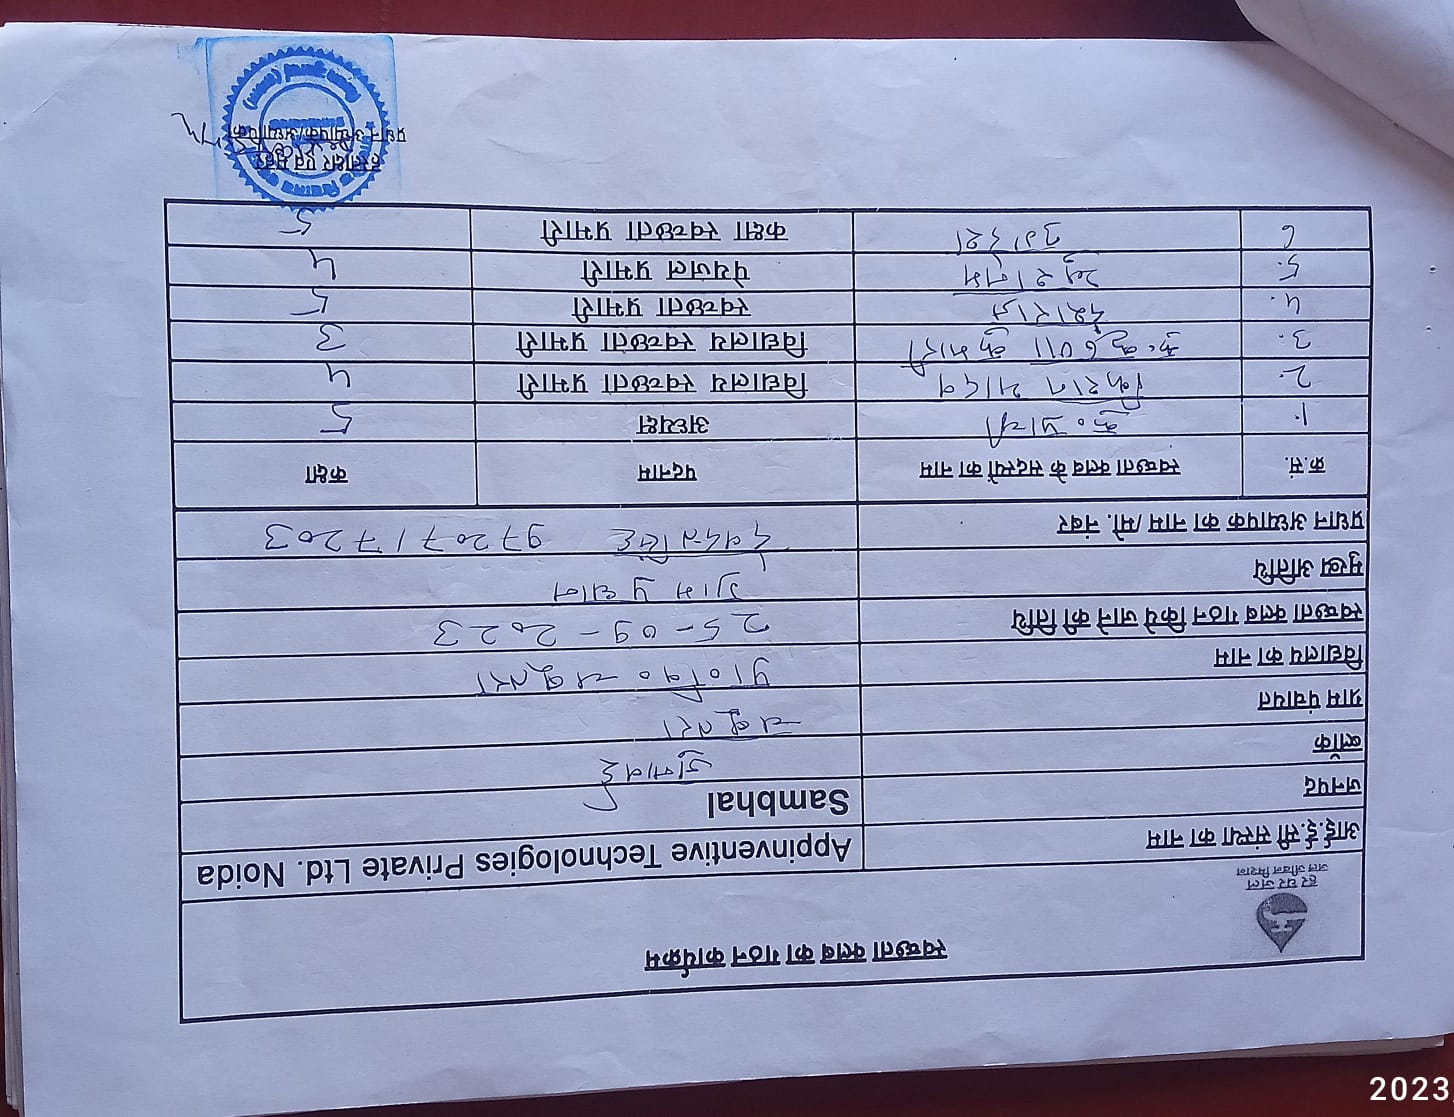 स्वच्छता क्लब का गठन कार्यक्रम
हर घर जल
जल जीवन मिशन
आई.ई.सी संस्था का नाम Appinventive Technologies Private Ltd. Noida
जनपद Sambhal
ब्लॉक जुनावई
ग्राम पंचायत
विद्यालय का नाम प्रा० वि०
स्वच्छता क्लब गठन किये जाने की तिथि 25-09-2023
मुख्य अतिथि ग्राम प्रधान
प्रधान अध्यापक का नाम /मो. नंबर सिंह 9720717203
क्र.सं. स्वच्छता क्लब के सदस्यों का नाम पदनाम कक्षा
1. कु० प्राची अध्यक्ष 5
2. यादव विद्यालय स्वच्छता प्रभारी 4
3. कृष्णा कुमारी विद्यालय स्वच्छता प्रभारी 3
4. स्वच्छता प्रभारी 5
5. पेयजल प्रभारी 4
6 कक्षा स्वच्छता प्रभारी 5
हस्ताक्षर एवं मुहर
प्रधान अध्यापक/अध्यापिका
2023